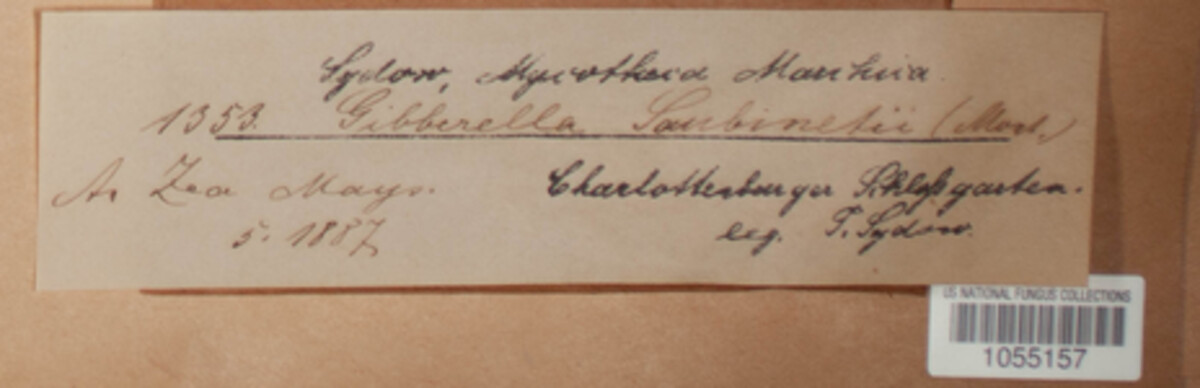 Sydow, Mycotheca Marchica.
1353. Gibberella Saubinetii (Mont.)
A. Zea Mays. Charlottenburger Schloßgarten.
5. 1887 leg. P. Sydow.
US NATIONAL FUNGUS COLLECTIONS
1055157